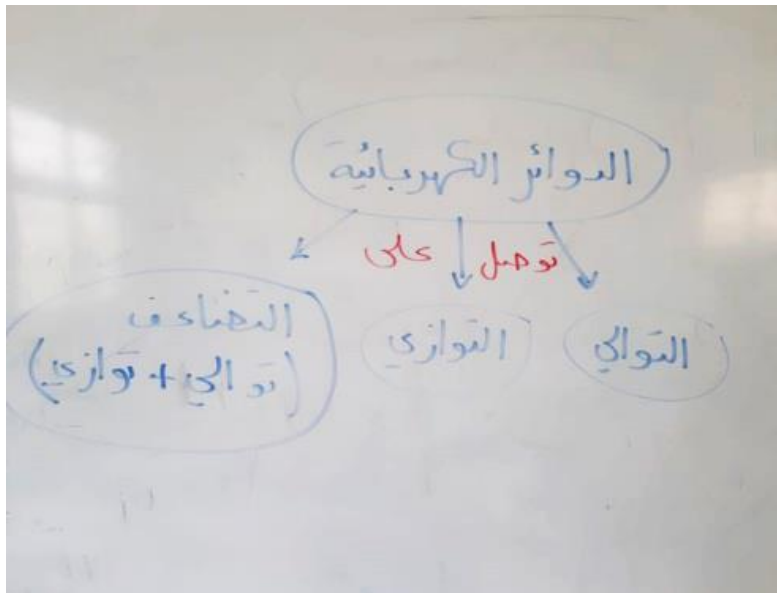 الدوائر الكهربائية
توصل على
التوالي
التوازي
التضاعف
(توالي + توازي)